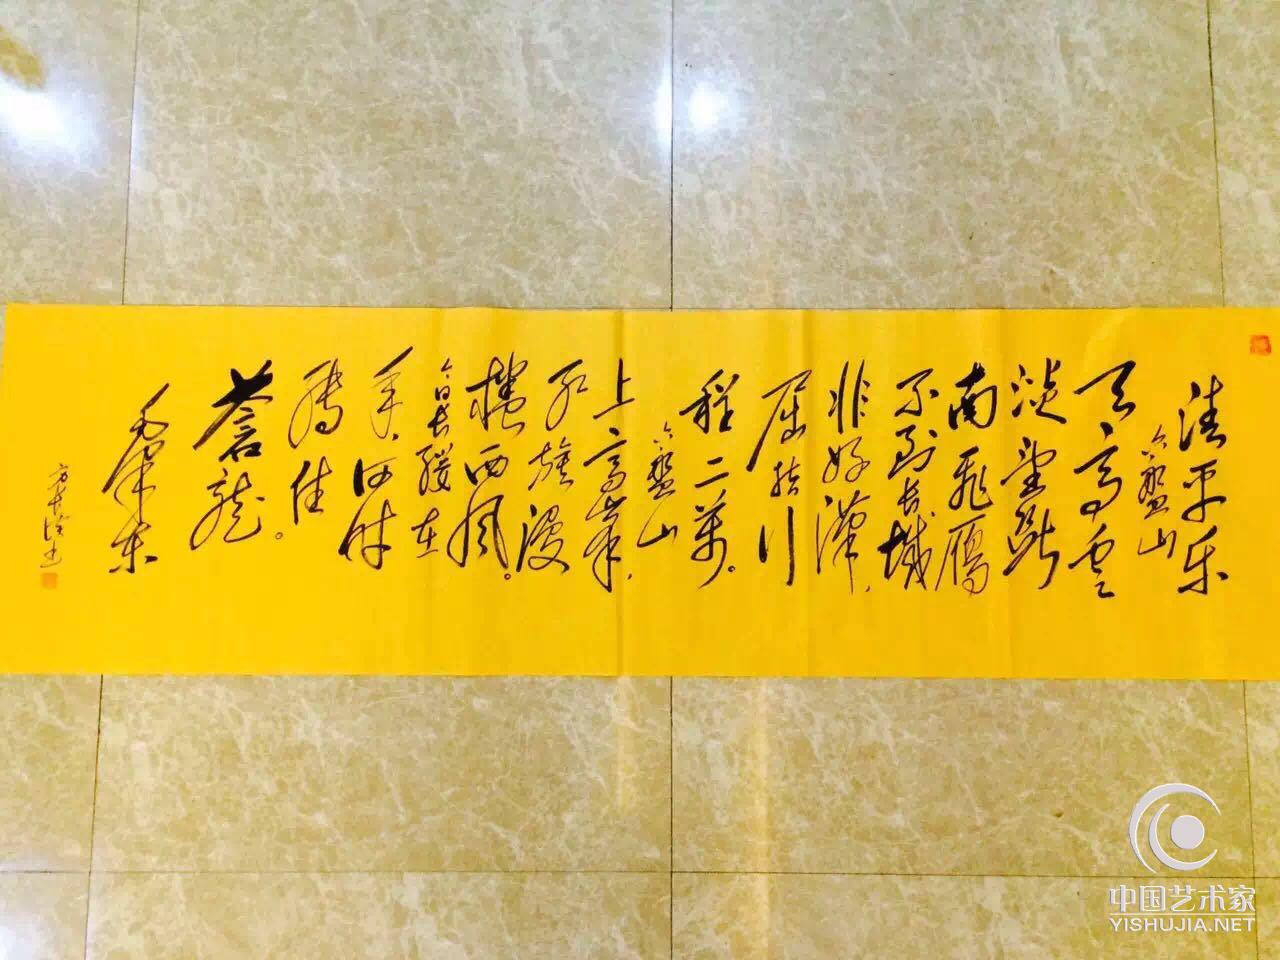 清平乐
六盘山
天高云
淡望断
南飞雁
不到长城
非好汉，
屈指行
程二万。
六盘山
上高峰，
红旗漫
捲西风。
今日长缨在
手，何时
缚住
苍龙。
毛泽东
中国艺术家
YISHUJIA.NET